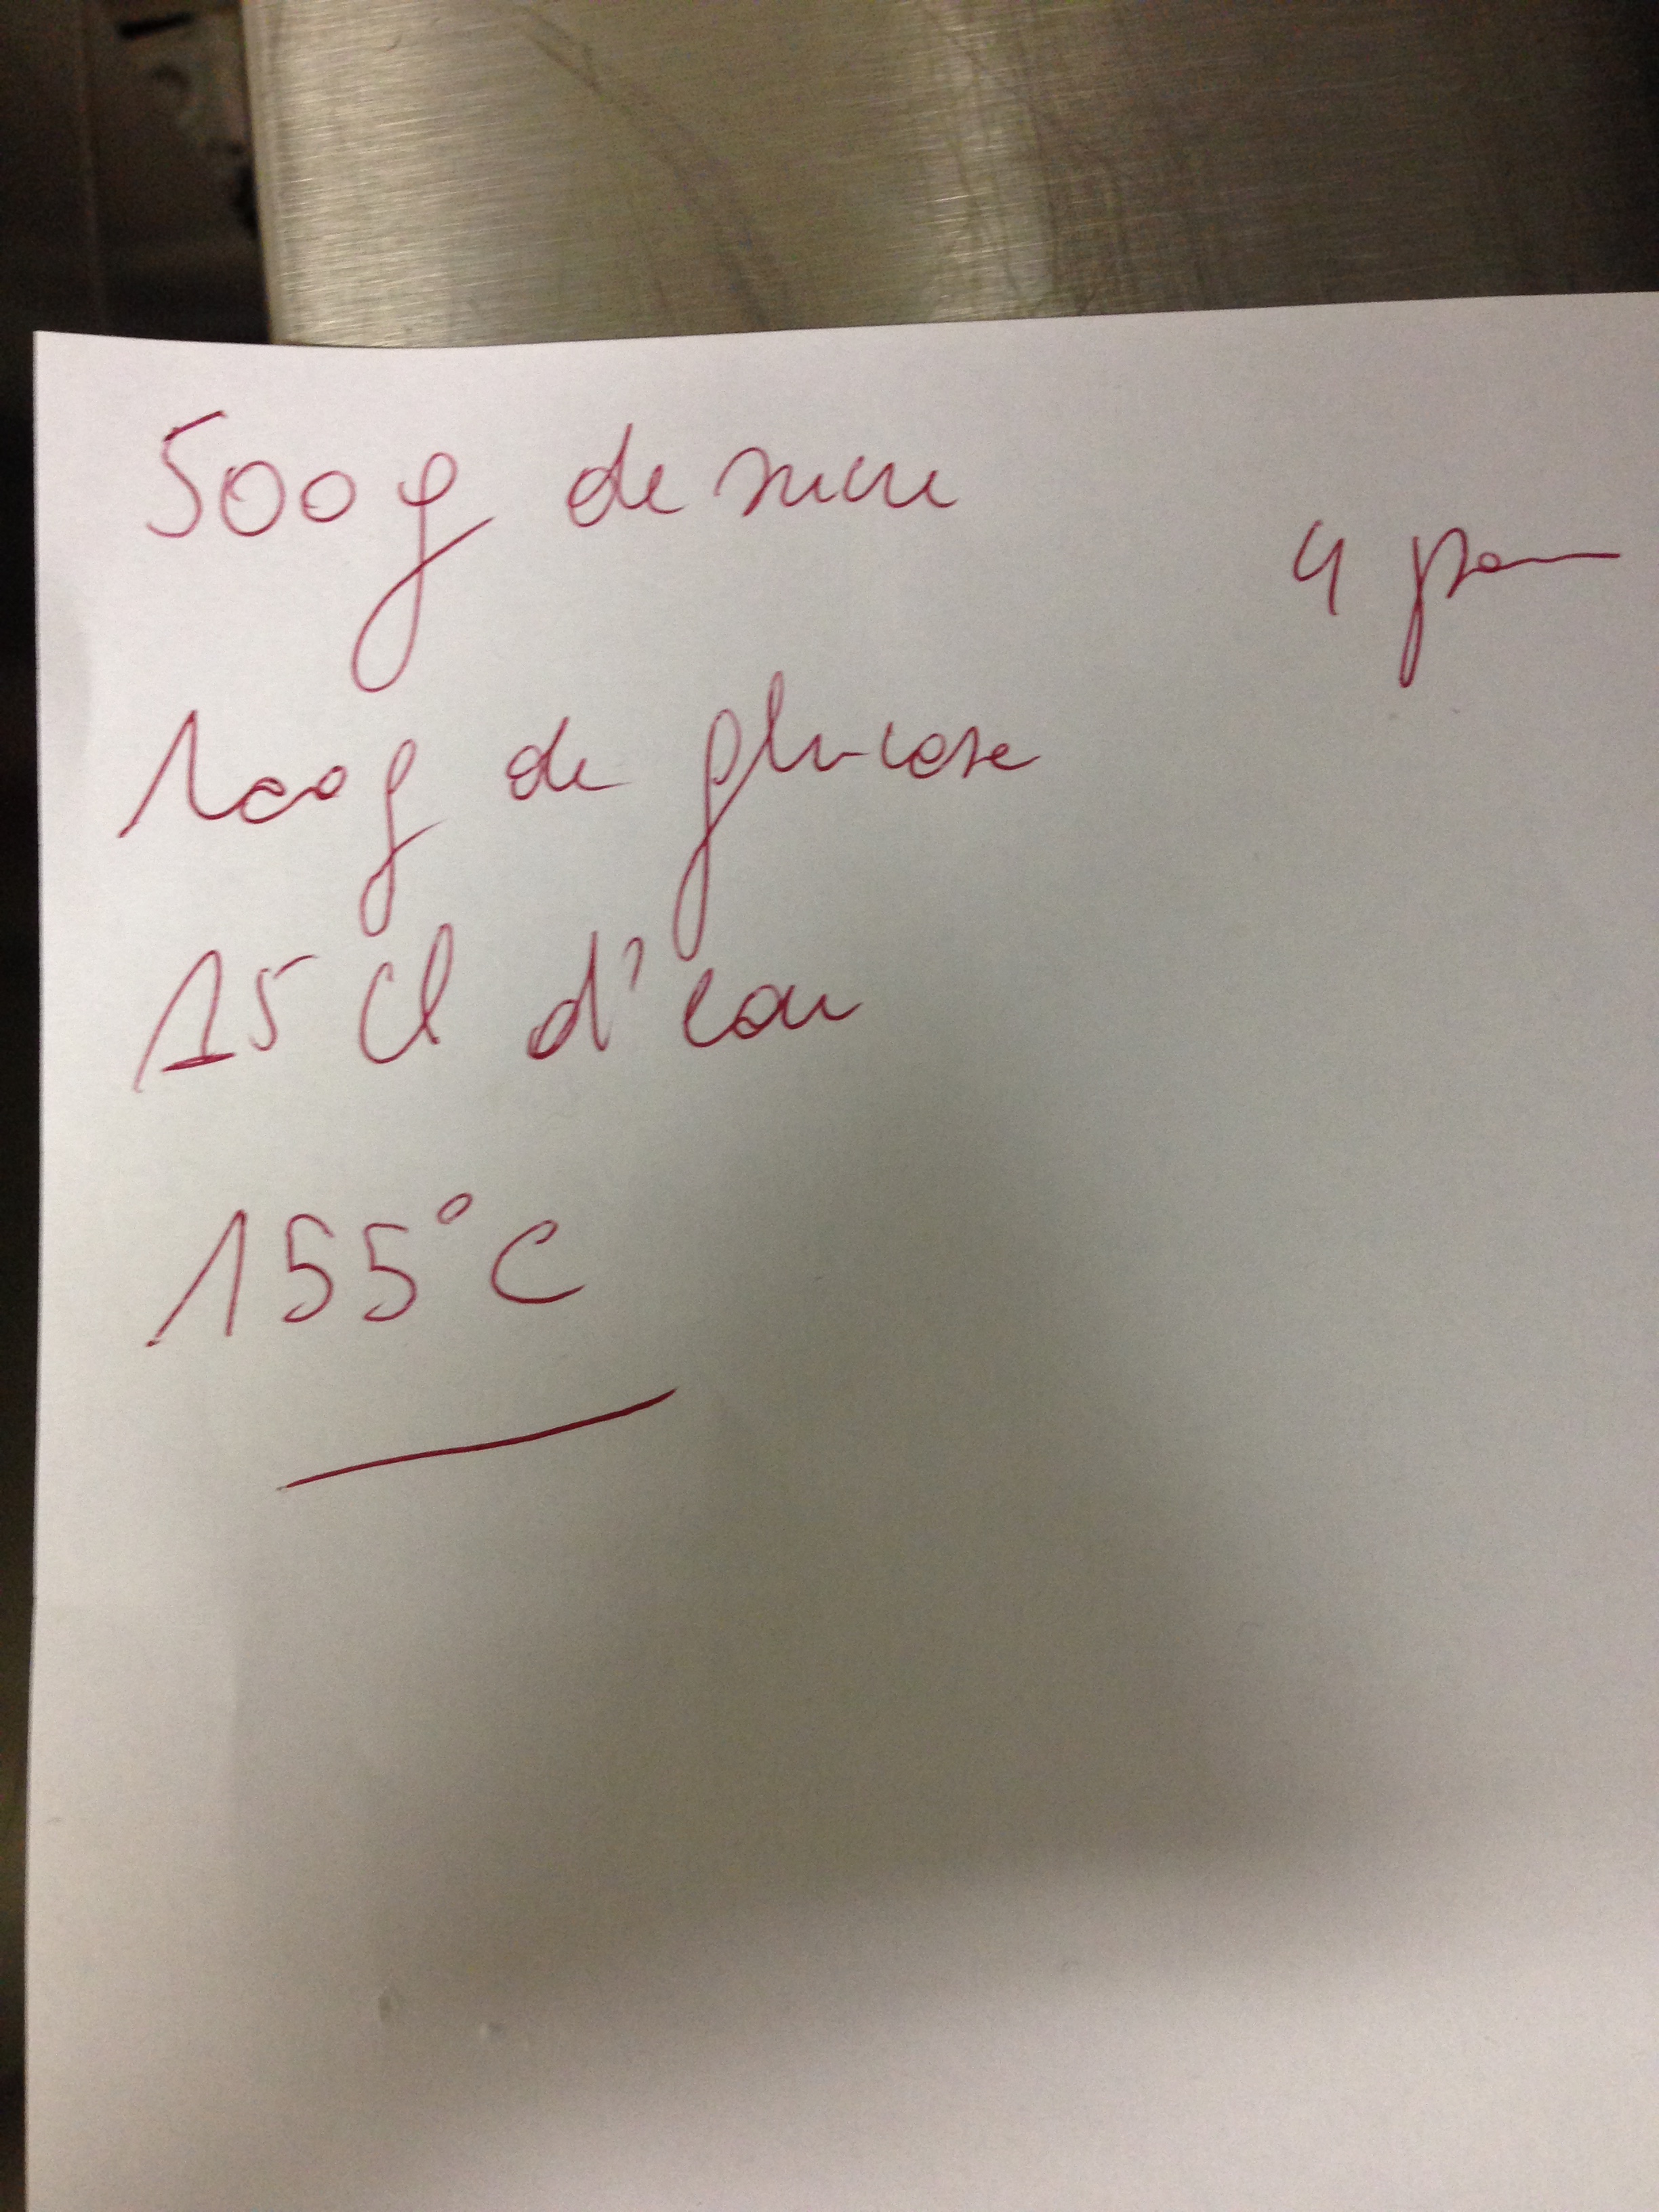 500g de sucre
4
100g de glucose
15 Cl d'eau
155°C